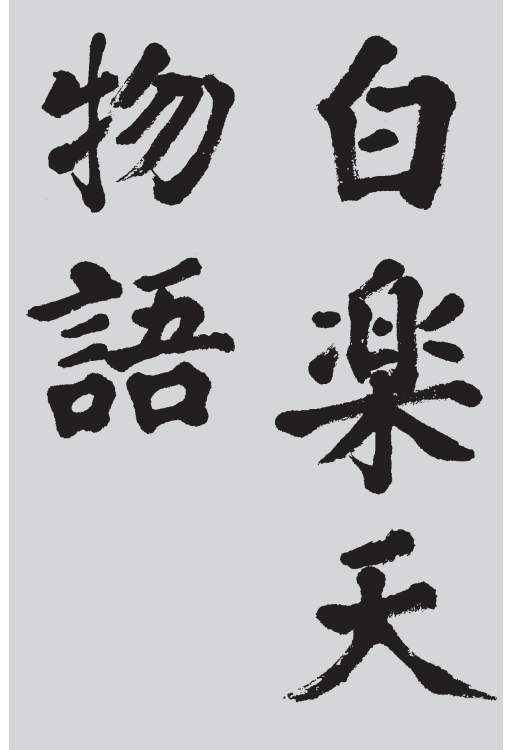 白楽天
物語